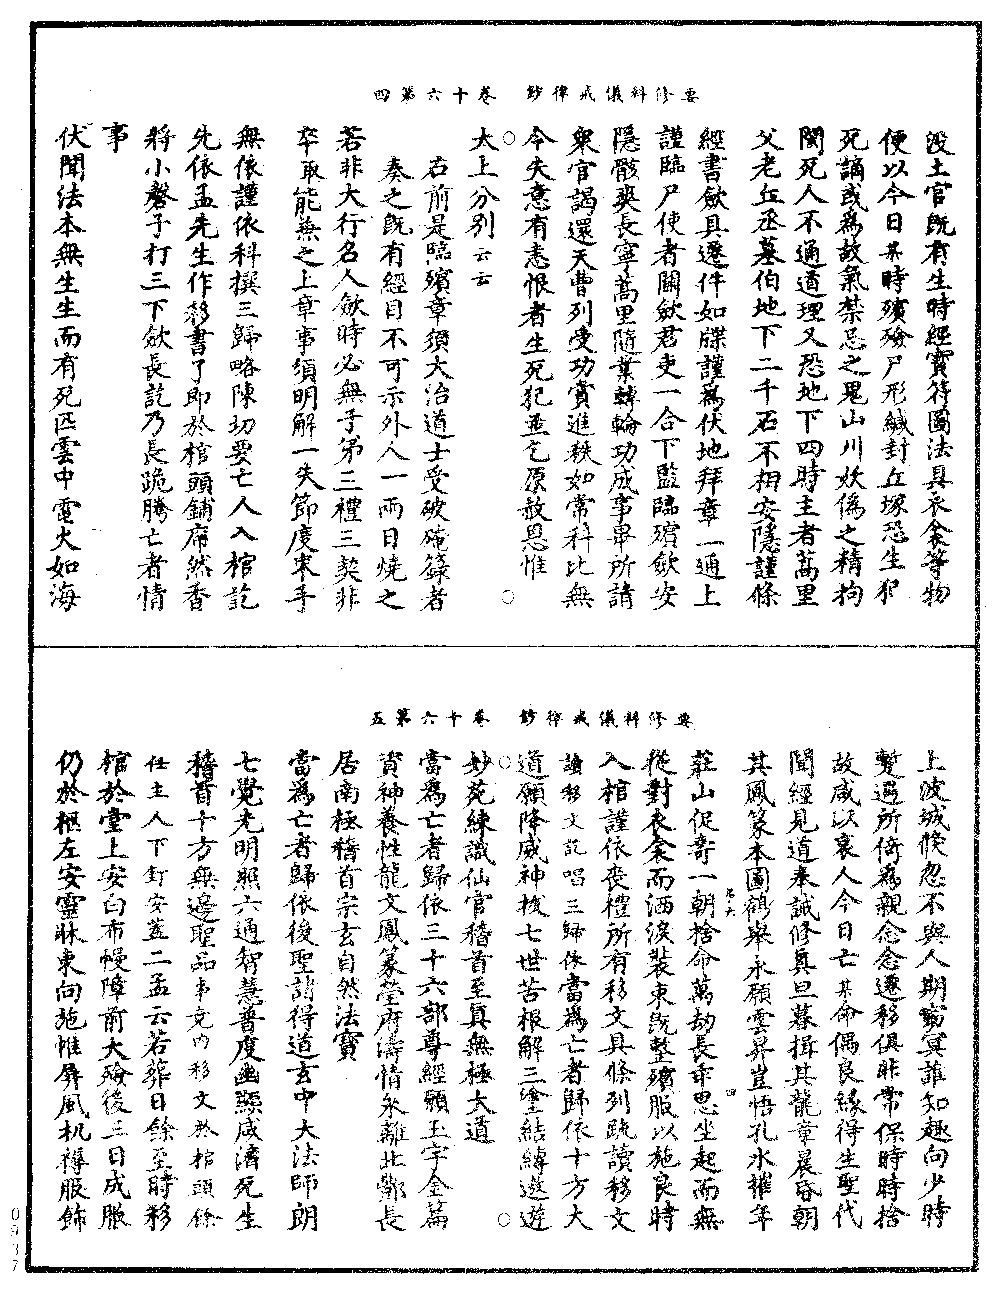 要修科儀戒律鈔 卷十六第四
沒土官旣有生時經寶符圖法具衣衾等物
便以今日某時殯殮尸形緘封丘塚恐生犯
死謫或爲故氣禁忌之鬼山川妖僞之精拘
閡死人不通道理又恐地下四時主者蒿里
父老丘丞墓伯地下二千石不相安隱謹條
經書斂具遷件如牒謹爲伏地拜章一通上
謹臨尸使者關斂君吏一合下監臨殯斂安
隱骸葬長寧蒿里隨業轉輪功成事畢所請
衆官謁還天曹列受功賞進秩如常科比無
今失意有恚恨者生死犯並乞原赦恩惟
太上分別云云
右前是臨殯章須大治道士受破硩籙者
奏之旣有經目不可示外人一兩日燒之
若非大行名人斂時必無子弟三禮三契非
卒取能兼之上章事須明解一失節度末手
無依謹依科撰三歸略陳切要亡人入棺訖
先依孟先生作移書了即於棺頭鋪席然香
將小磬子打三下斂長訖乃長跪騰亡者情
事
伏聞法本無生生而有死匹雲中電火如海
要修科儀戒律鈔 卷十六第五
上波城倏忽不與人期窈冥誰知趣向少時
蹔過所倚爲親念念遷移俱非常保時時捨
故咸以裏人今日亡某命偶良緣得生聖代
聞經見道奉誠修眞旦暮揖其龍章晨昏朝
其鳳篆本圖鶴舉永願雲昇豈悟孔水摧年
莊山促哥一朝捨命萬劫長乖思坐起而無
從對衣衾而洒淚裝束旣整殯服以施良時
入棺謹依喪禮所有移文具條列疏讀移文
讀移文訖唱三歸依當爲亡者歸依十方大
道願降威神拔七世苦根解三塗結縛遨遊
妙苑練識仙官稽首至眞無極大道
當爲亡者歸依三十六部尊經願玉字金篇
資神養性龍文鳳篆瑩府濤情永離北酆長
居南極稽首宗玄自然法寶
當爲亡者歸依後聖諸得道玄中大法師朗
七覺光明照六通智慧普度幽顯咸濟死生
稽首十方無邊聖品事竟內移文於棺頭餘
任主人下釘安蓋二孟云若葬日餘至時移
棺於堂上安白布幔障前大殮後三日成服
仍於柩左安靈牀東向施帷屏風机褥服飾
0937